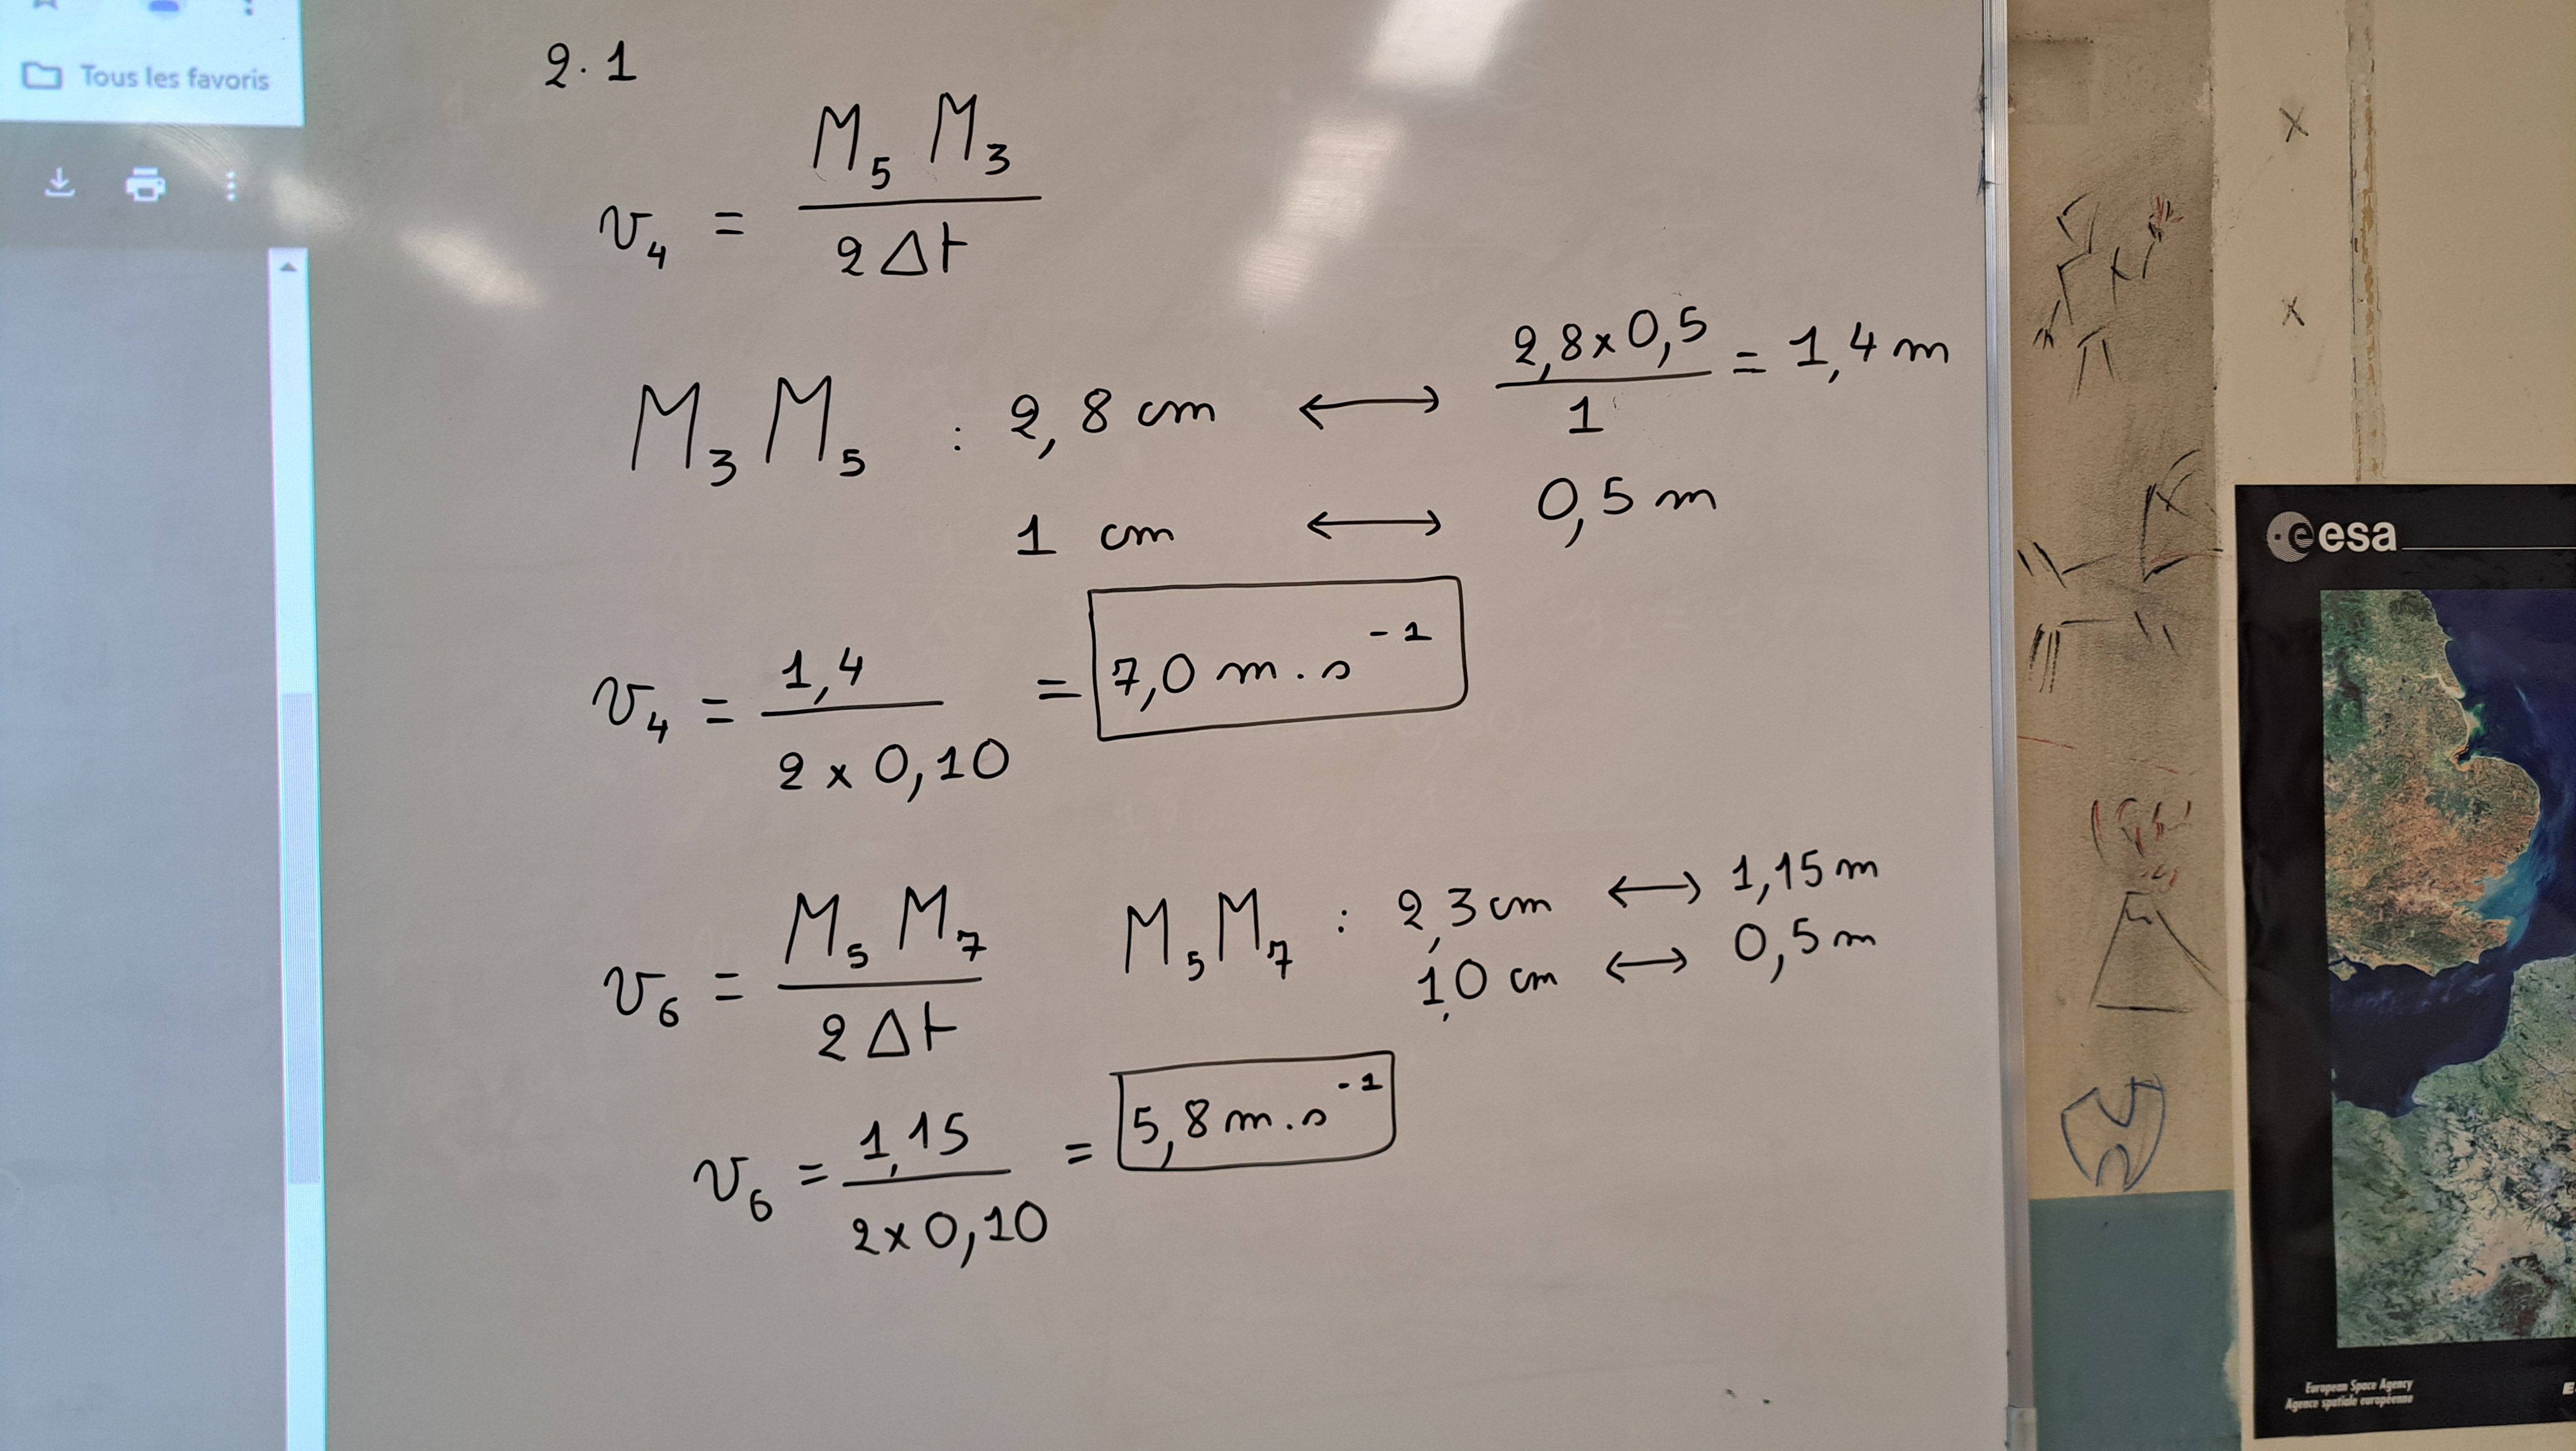 Tous les favoris
2.1
v₄ = M₅ M₃ / 2 Δt
M₃ M₅ : 2,8 cm ⟷ 2,8 x 0,5 / 1 = 1,4 m
1 cm ⟷ 0,5 m
v₄ = 1,4 / 2 x 0,10 = 7,0 m.s⁻¹
v₆ = M₅ M₇ / 2 Δt
M₅ M₇ : 2,3 cm ⟷ 1,15 m
1,0 cm ⟷ 0,5 m
v₆ = 1,15 / 2 x 0,10 = 5,8 m.s⁻¹
esa
European Space Agency
Agence spatiale européenne